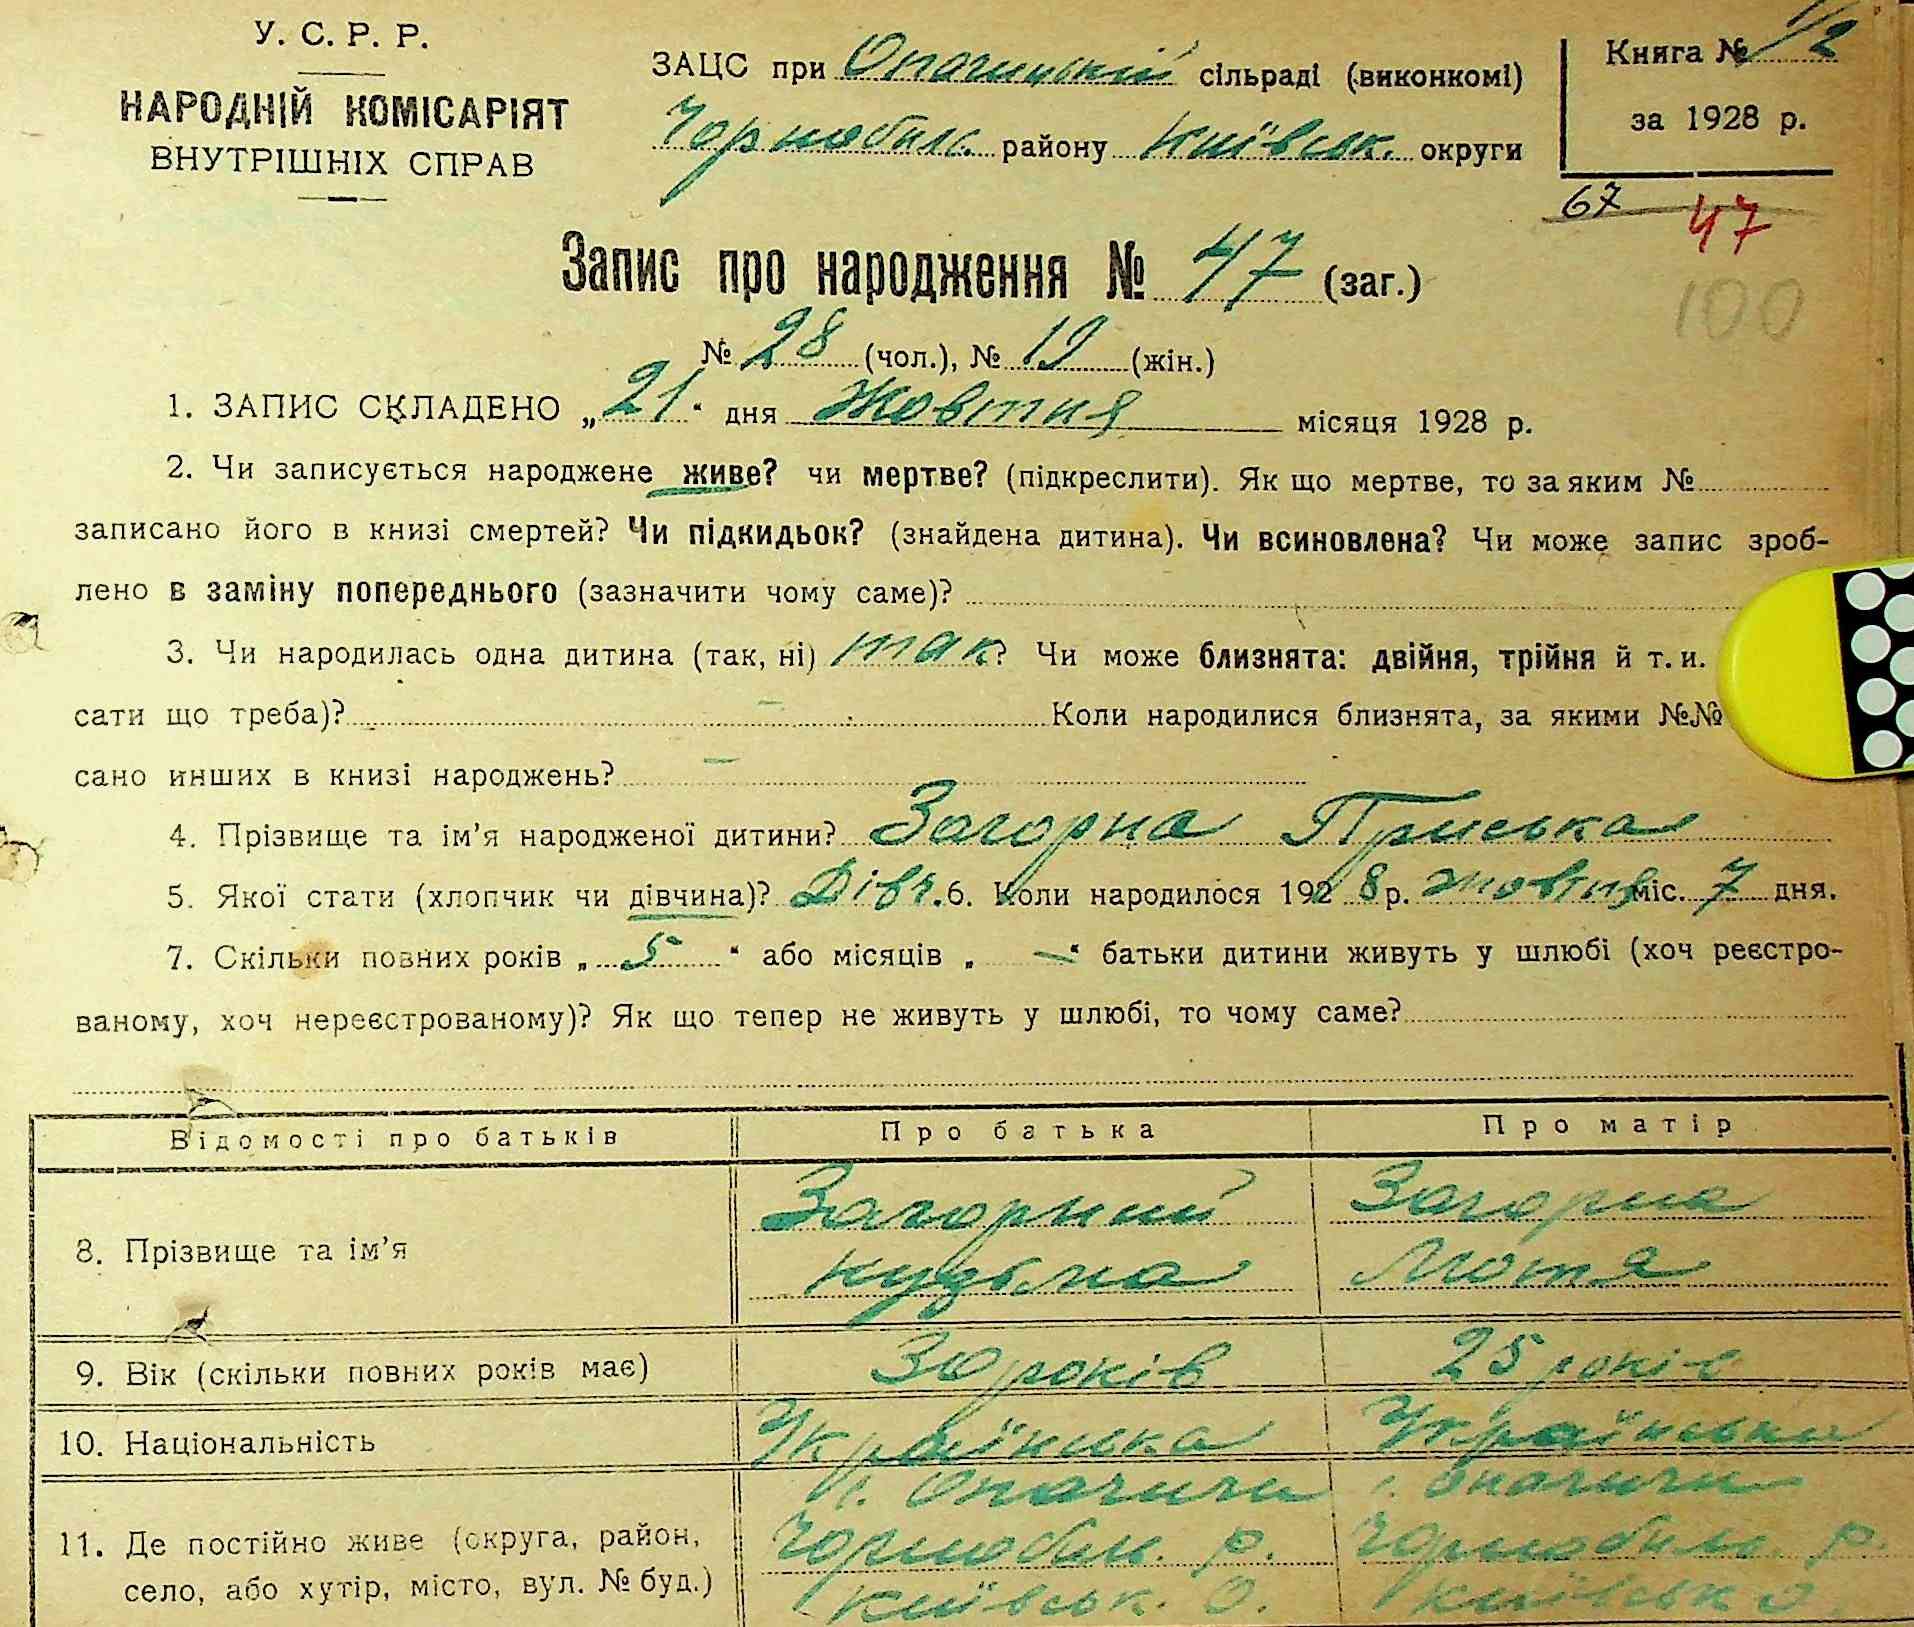 У. С. Р. Р.
НАРОДНІЙ КОМІСАРІЯТ
ВНУТРІШНІХ СПРАВ
ЗАЦС при Опачицькій сільраді (виконкомі)
Чорнобил. району Київськ. округи
Книга № 1/2
за 1928 р.
67 47
Запис про народження № 47 (заг.)
100
№ 28 (чол.), № 19 (жін.)
1. ЗАПИС СКЛАДЕНО „21“ дня Жовтня місяця 1928 р.
2. Чи записується народжене живе? чи мертве? (підкреслити). Як що мертве, то за яким №
записано його в книзі смертей? Чи підкидьок? (знайдена дитина). Чи всиновлена? Чи може запис зроб-
лено в заміну попереднього (зазначити чому саме)?
3. Чи народилась одна дитина (так, ні) так? Чи може близнята: двійня, трійня й т. и.
сати що треба)? – Коли народилися близнята, за якими №№
сано инших в книзі народжень? –
4. Прізвище та ім’я народженої дитини? Загорна Приська
5. Якої стати (хлопчик чи дівчина)? Дівч. 6. Коли народилося 1928 р. жовтня міс. 7 дня.
7. Скільки повних років „5“ або місяців „–“ батьки дитини живуть у шлюбі (хоч реєстро-
ваному, хоч нереєстрованому)? Як що тепер не живуть у шлюбі, то чому саме?
Відомості про батьків Про батька Про матір
8. Прізвище та ім’я
Загорний Загорна
Кузьма Мотя
9. Вік (скільки повних років має) 30 років 25 років
10. Національність Українська Українська
11. Де постійно живе (округа, район,
село, або хутір, місто, вул. № буд.)
с. Опачичи с. Опачичи
Чорнобил. р. Чорнобил. р.
Київськ. О. Київськ О.